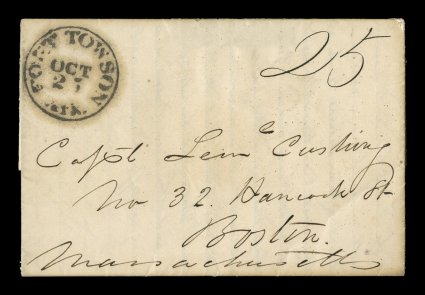 FORT TOWSON
OCT
Ark.
25
Capt Lem Cushing
No 32. Hancock St
Boston.
Massachusetts